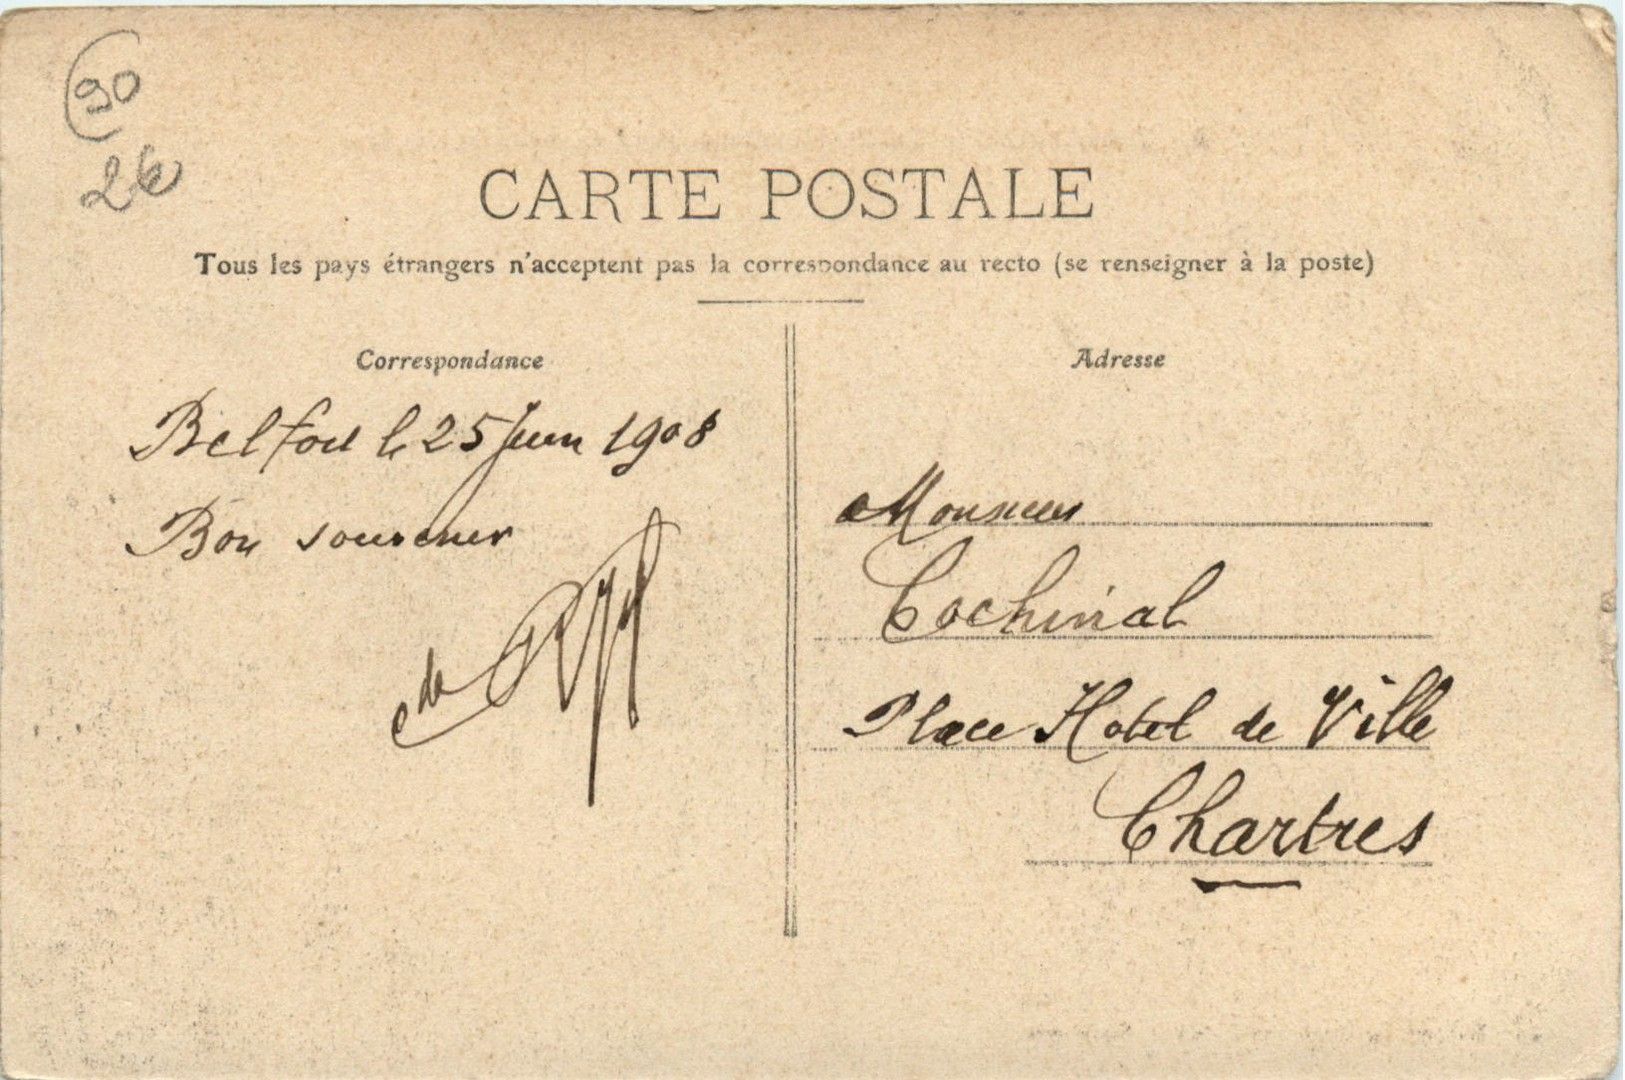 90
2€
CARTE POSTALE
Tous les pays étrangers n'acceptent pas la correspondance au recto (se renseigner à la poste)
Correspondance
Belfort le 25 Juin 1908
Bon souvenir
de
Adresse
Monsieur
Cochinal
Place Hotel de Ville
Chartres